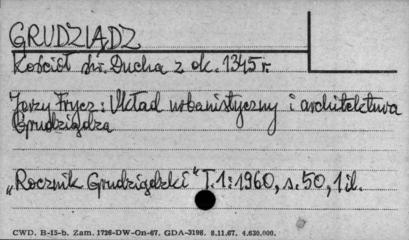 GRUDZIĄDZ
Kościół św. Ducha z ok. 1345 r.
Jerzy Frycz: Układ urbanistyczny i architektura
Grudziądza
„Rocznik Grudziądzki” T.1: 1960, s. 50, 1 il.
CWD. B-15-b. Zam. 1726-DW-On-67. GDA-3198. 8.11.67. 4.630.000.